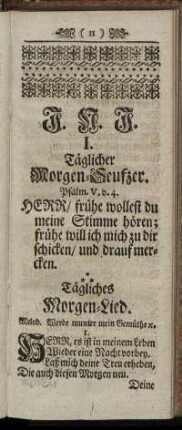 ( 11 )
J. N. J.
I.
Täglicher
Morgen-Seufzer.
Psalm. V. v. 4.
HERR/ frühe wollest du
meine Stimme hören;
frühe will ich mich zu dir
schicken/ und drauf mer-
cken.
Tägliches
Morgen-Lied.
Melod. Werde munter mein Gemüthe ꝛc.
1.
HERR, es ist in meinem Leben
Wieder eine Nacht vorbey.
Laß mich deine Treu erheben,
Die auch diesen Morgen neu.
Deine